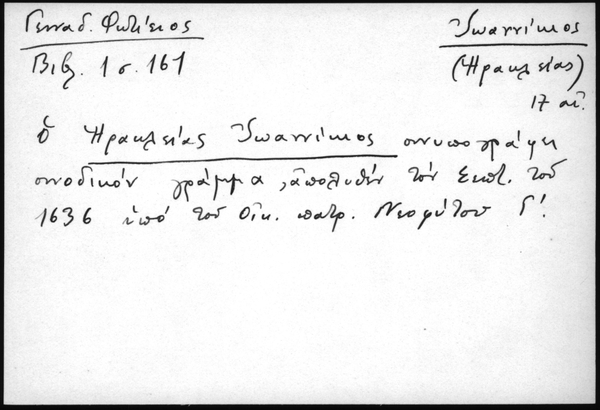 Γενναδ. Φωτίειος
Βιβλ. 1 σ. 161
Ἰωαννίκιος
(Ἡρακλείας)
17 αἰ.
ὁ Ἡρακλείας Ἰωαννίκιος συνυπογράφει
συνοδικόν γράμμα, ἀπολυθέν τόν Σεπτ. τοῦ
1636 ὑπό τοῦ Οἰκ. πατρ. Νεοφύτου Γ΄.